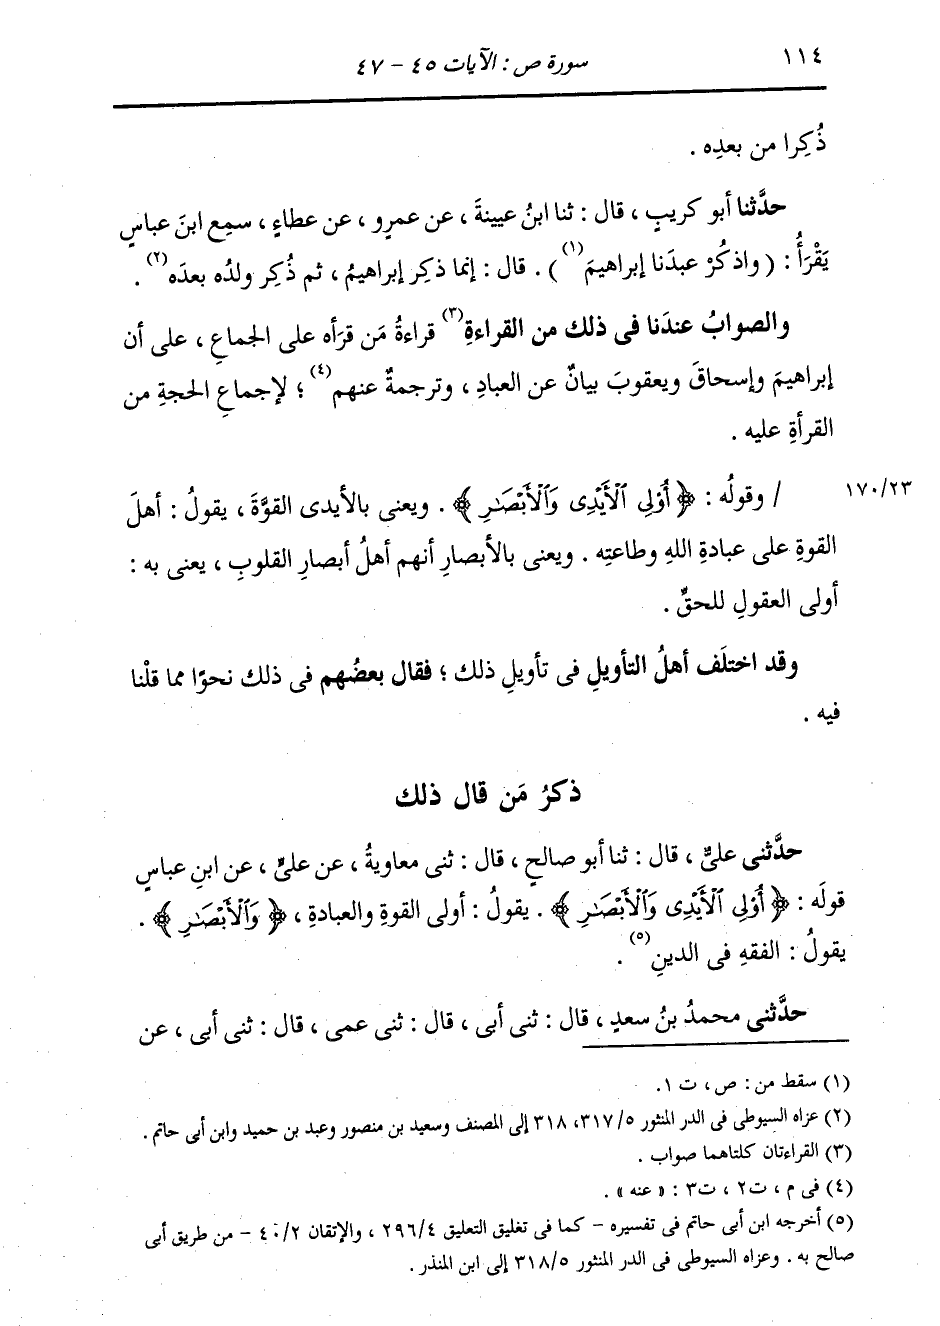 ١١٤
سورة ص : الآيات ٤٥ - ٤٧
ذُكِرا من بعدِه .
حدَّثنا أبو كريبٍ ، قال : ثنا ابنُ عيينةَ ، عن عمرٍو ، عن عطاءٍ ، سمِع ابنَ عباسٍ
يَقْرَأُ : ( واذكُرْ عبدَنا إبراهيمَ(١) ) . قال : إنما ذكِر إبراهيمُ ، ثم ذُكِر ولدُه بعدَه(٢) .
والصوابُ عندَنا فى ذلك من القراءةِ(٣) قراءةُ مَن قرَأه على الجماعِ ، على أن
إبراهيمَ وإسحاقَ ويعقوبَ بيانٌ عن العبادِ ، وترجمةٌ عنهم(٤) ؛ لإجماعِ الحجةِ من
القرأةِ عليه .
/ وقولُه : ﴿ أُوْلِى ٱلْأَيْدِى وَٱلْأَبْصَـٰرِ ﴾ . ويعنى بالأيدى القوَّةَ ، يقولُ : أهلَ
١٧٠/٢٣
القوةِ على عبادةِ اللهِ وطاعتِه . ويعنى بالأبصارِ أنهم أهلُ أبصارِ القلوبِ ، يعنى به :
أولى العقولِ للحقِّ .
وقد اختلَف أهلُ التأويلِ فى تأويلِ ذلك ؛ فقال بعضُهم فى ذلك نحوًا مما قلْنا
فيه .
ذكرُ مَن قال ذلك
حدَّثنى علىٌّ ، قال : ثنا أبو صالحٍ ، قال : ثنى معاويةُ ، عن علىٍّ ، عن ابنِ عباسٍ
قولَه : ﴿ أُوْلِى ٱلْأَيْدِى وَٱلْأَبْصَـٰرِ ﴾ . يقولُ : أولى القوةِ والعبادةِ ، ﴿ وَٱلْأَبْصَـٰرِ ﴾ .
يقولُ : الفقهِ فى الدينِ(٥) .
حدَّثنى محمدُ بنُ سعدٍ ، قال : ثنى أبى ، قال : ثنى عمى ، قال : ثنى أبى ، عن
(١) سقط من : ص ، ت ١.
(٢) عزاه السيوطى فى الدر المنثور ٣١٧/٥، ٣١٨ إلى المصنف وسعيد بن منصور وعبد بن حميد وابن أبى حاتم .
(٣) القراءتان كلتاهما صواب .
(٤) فى م ، ت٢ ، ت٣ : « عنه » .
(٥) أخرجه ابن أبى حاتم فى تفسيره - كما فى تغليق التعليق ٢٩٦/٤ ، والإتقان ٤٠/٢ - من طريق أبى
صالح به . وعزاه السيوطى فى الدر المنثور ٣١٨/٥ إلى ابن المنذر .